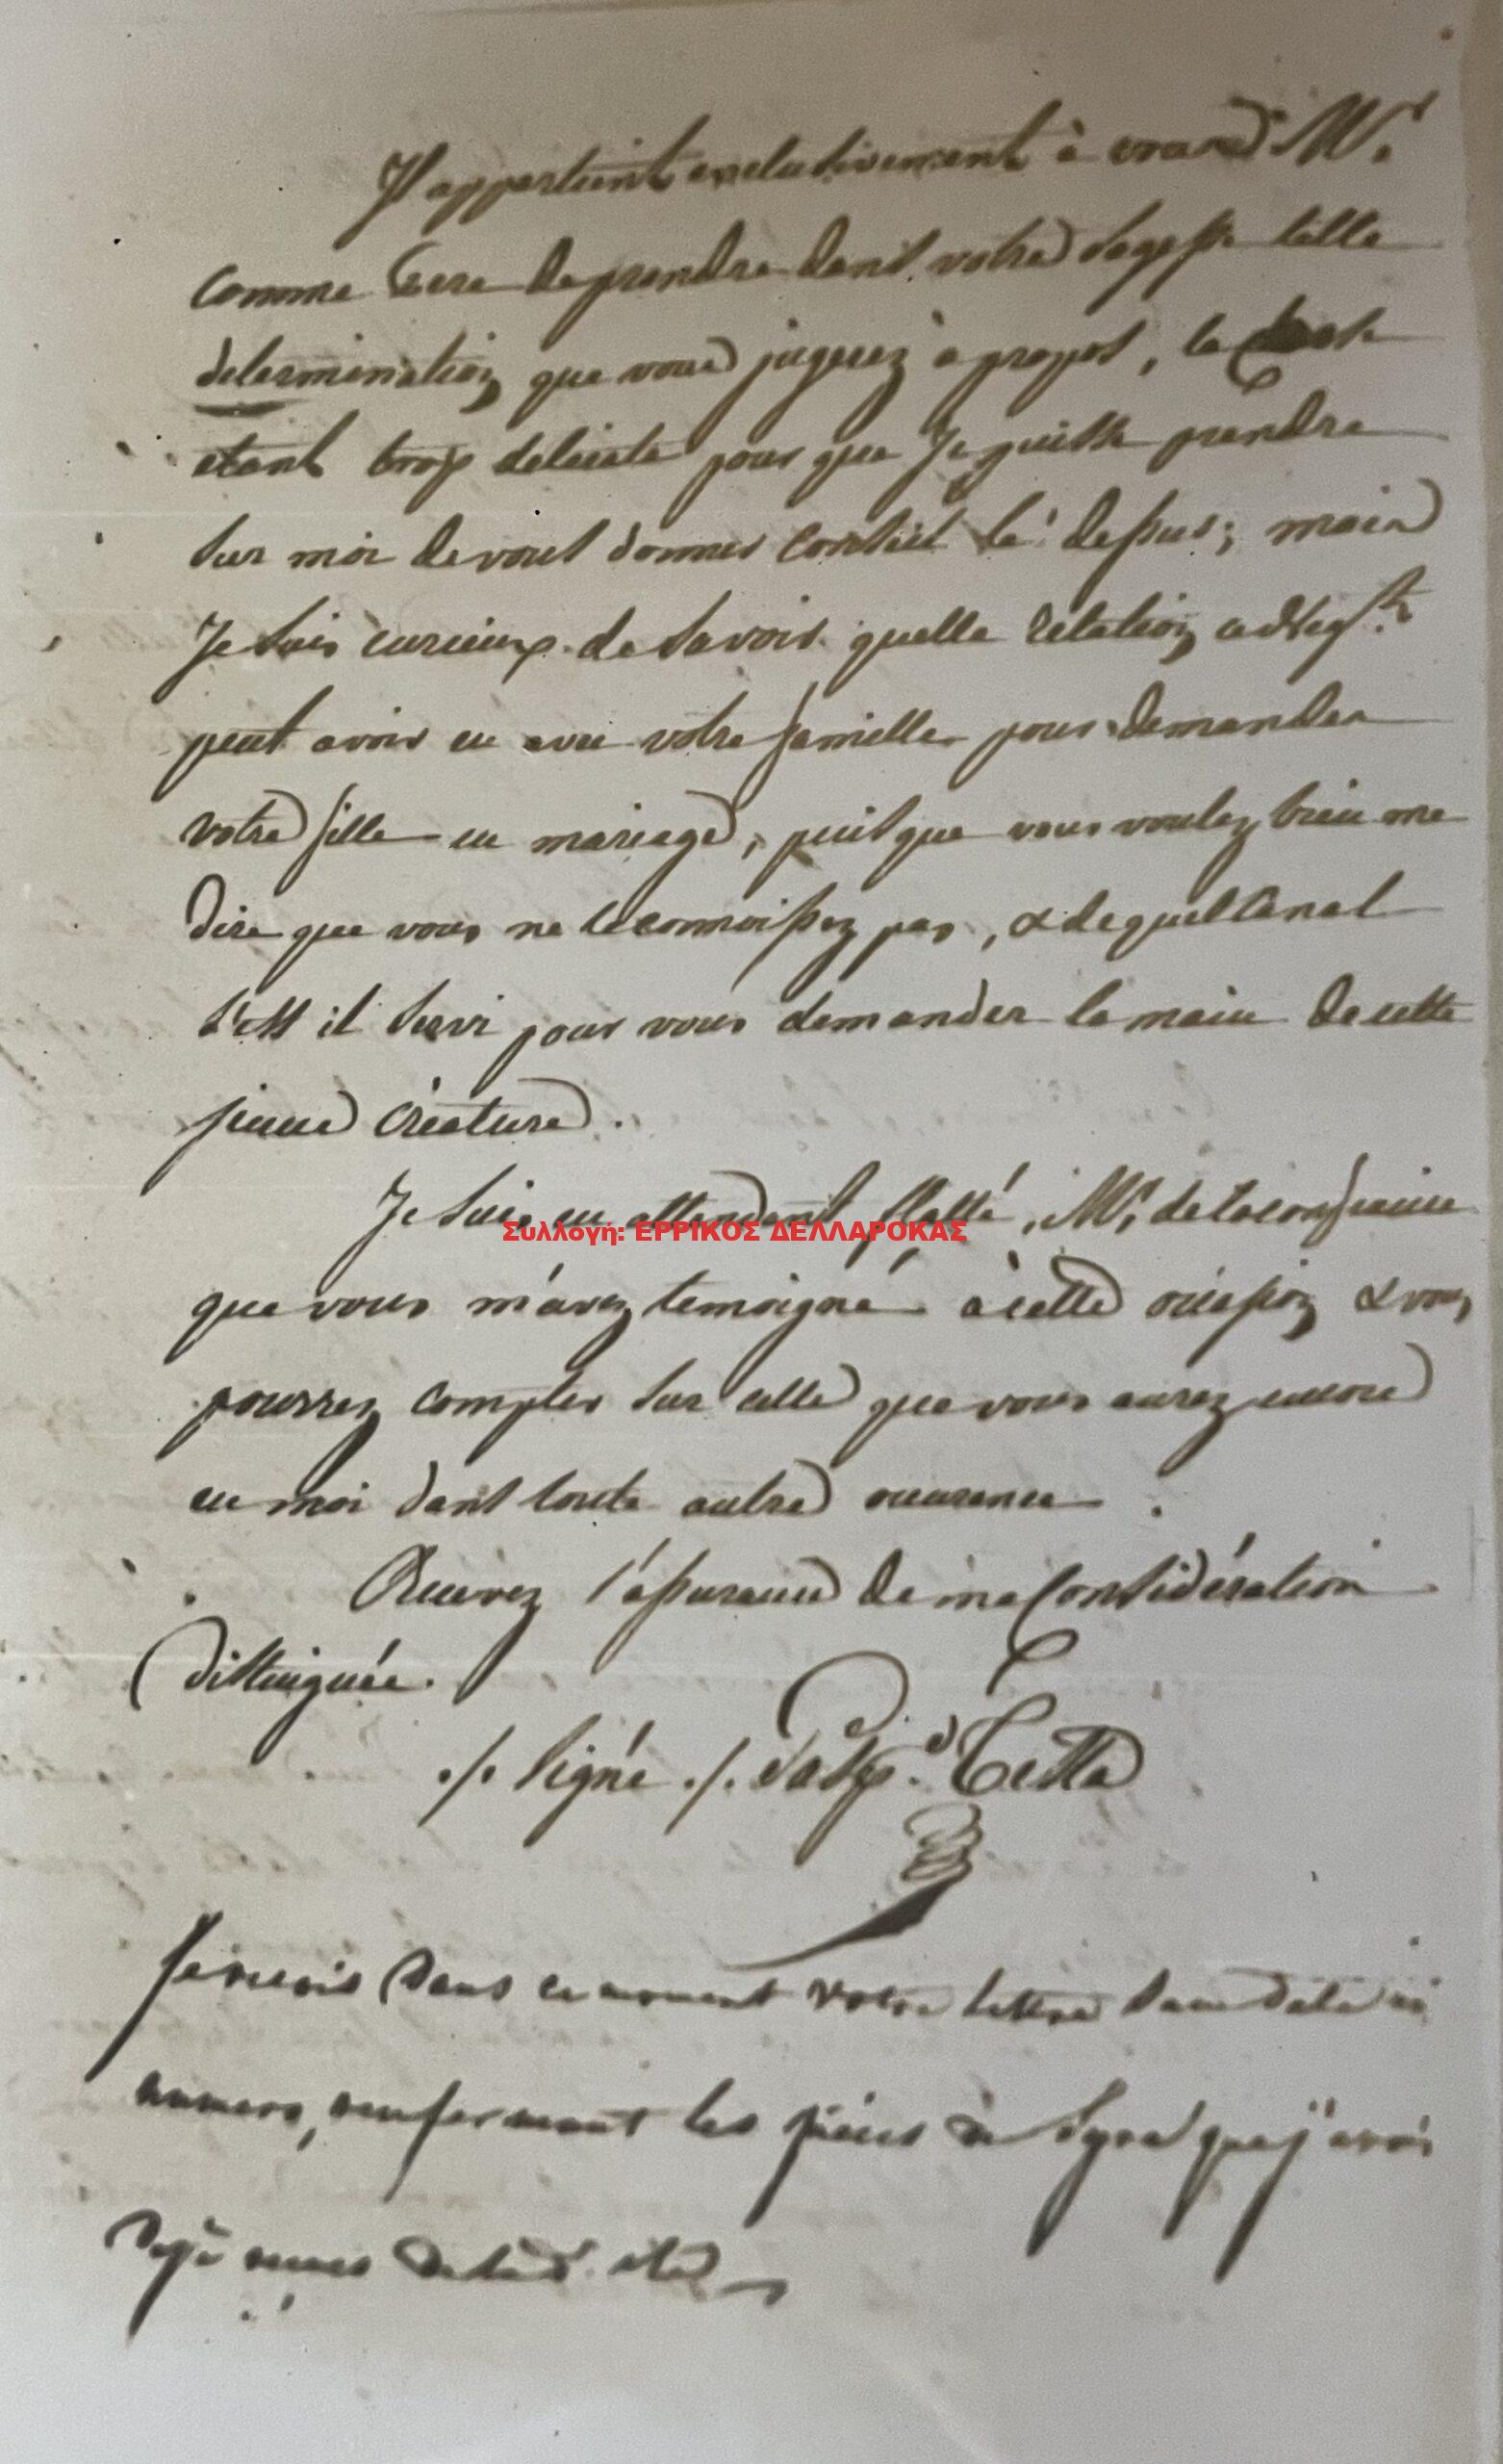 Il appartient exclusivement à vous Mr.
comme Pere de prendre dans votre sagesse telle
determination que vous jugerez à propos, la chose
etant trop delicate pour que Je puisse prendre
sur moi de vous donner conseil là dessus; mais
Je suis curieux de savoir quelle relation
peut avoir eu avec votre famille pour demander
votre fille en mariage, puisque vous voulez bien me
dire que vous ne le connoissez pas, & de quel Canal
s'est il servi pour vous demander la main de cette
jeune Créature.
Je suis en attendant flatté, Mr. de la confiance
Συλλογή: ΕΡΡΙΚΟΣ ΔΕΛΛΑΡΟΚΑΣ
que vous m'avez temoigné à cette occasion & vous
pourrez compter sur celle que vous aurez encore
en moi dans toute autre occurence.
Recevez l'assurance de ma Considération
distinguée.
./. Signé ./. Testa
Je reçois dans ce moment votre lettre sans date ni
numero, renfermant les pièces de Syra que j'avois